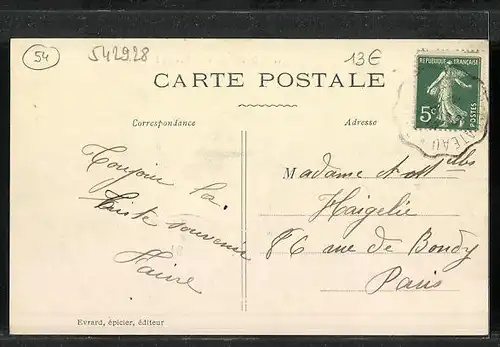 54
542928
13€
CARTE POSTALE
RÉPUBLIQUE FRANÇAISE
5c
POSTES
Correspondance
Adresse
Toujour la
triste souvenir
Madame et Melles
86 rue de Bondy
Paris
Evrard, épicier, éditeur